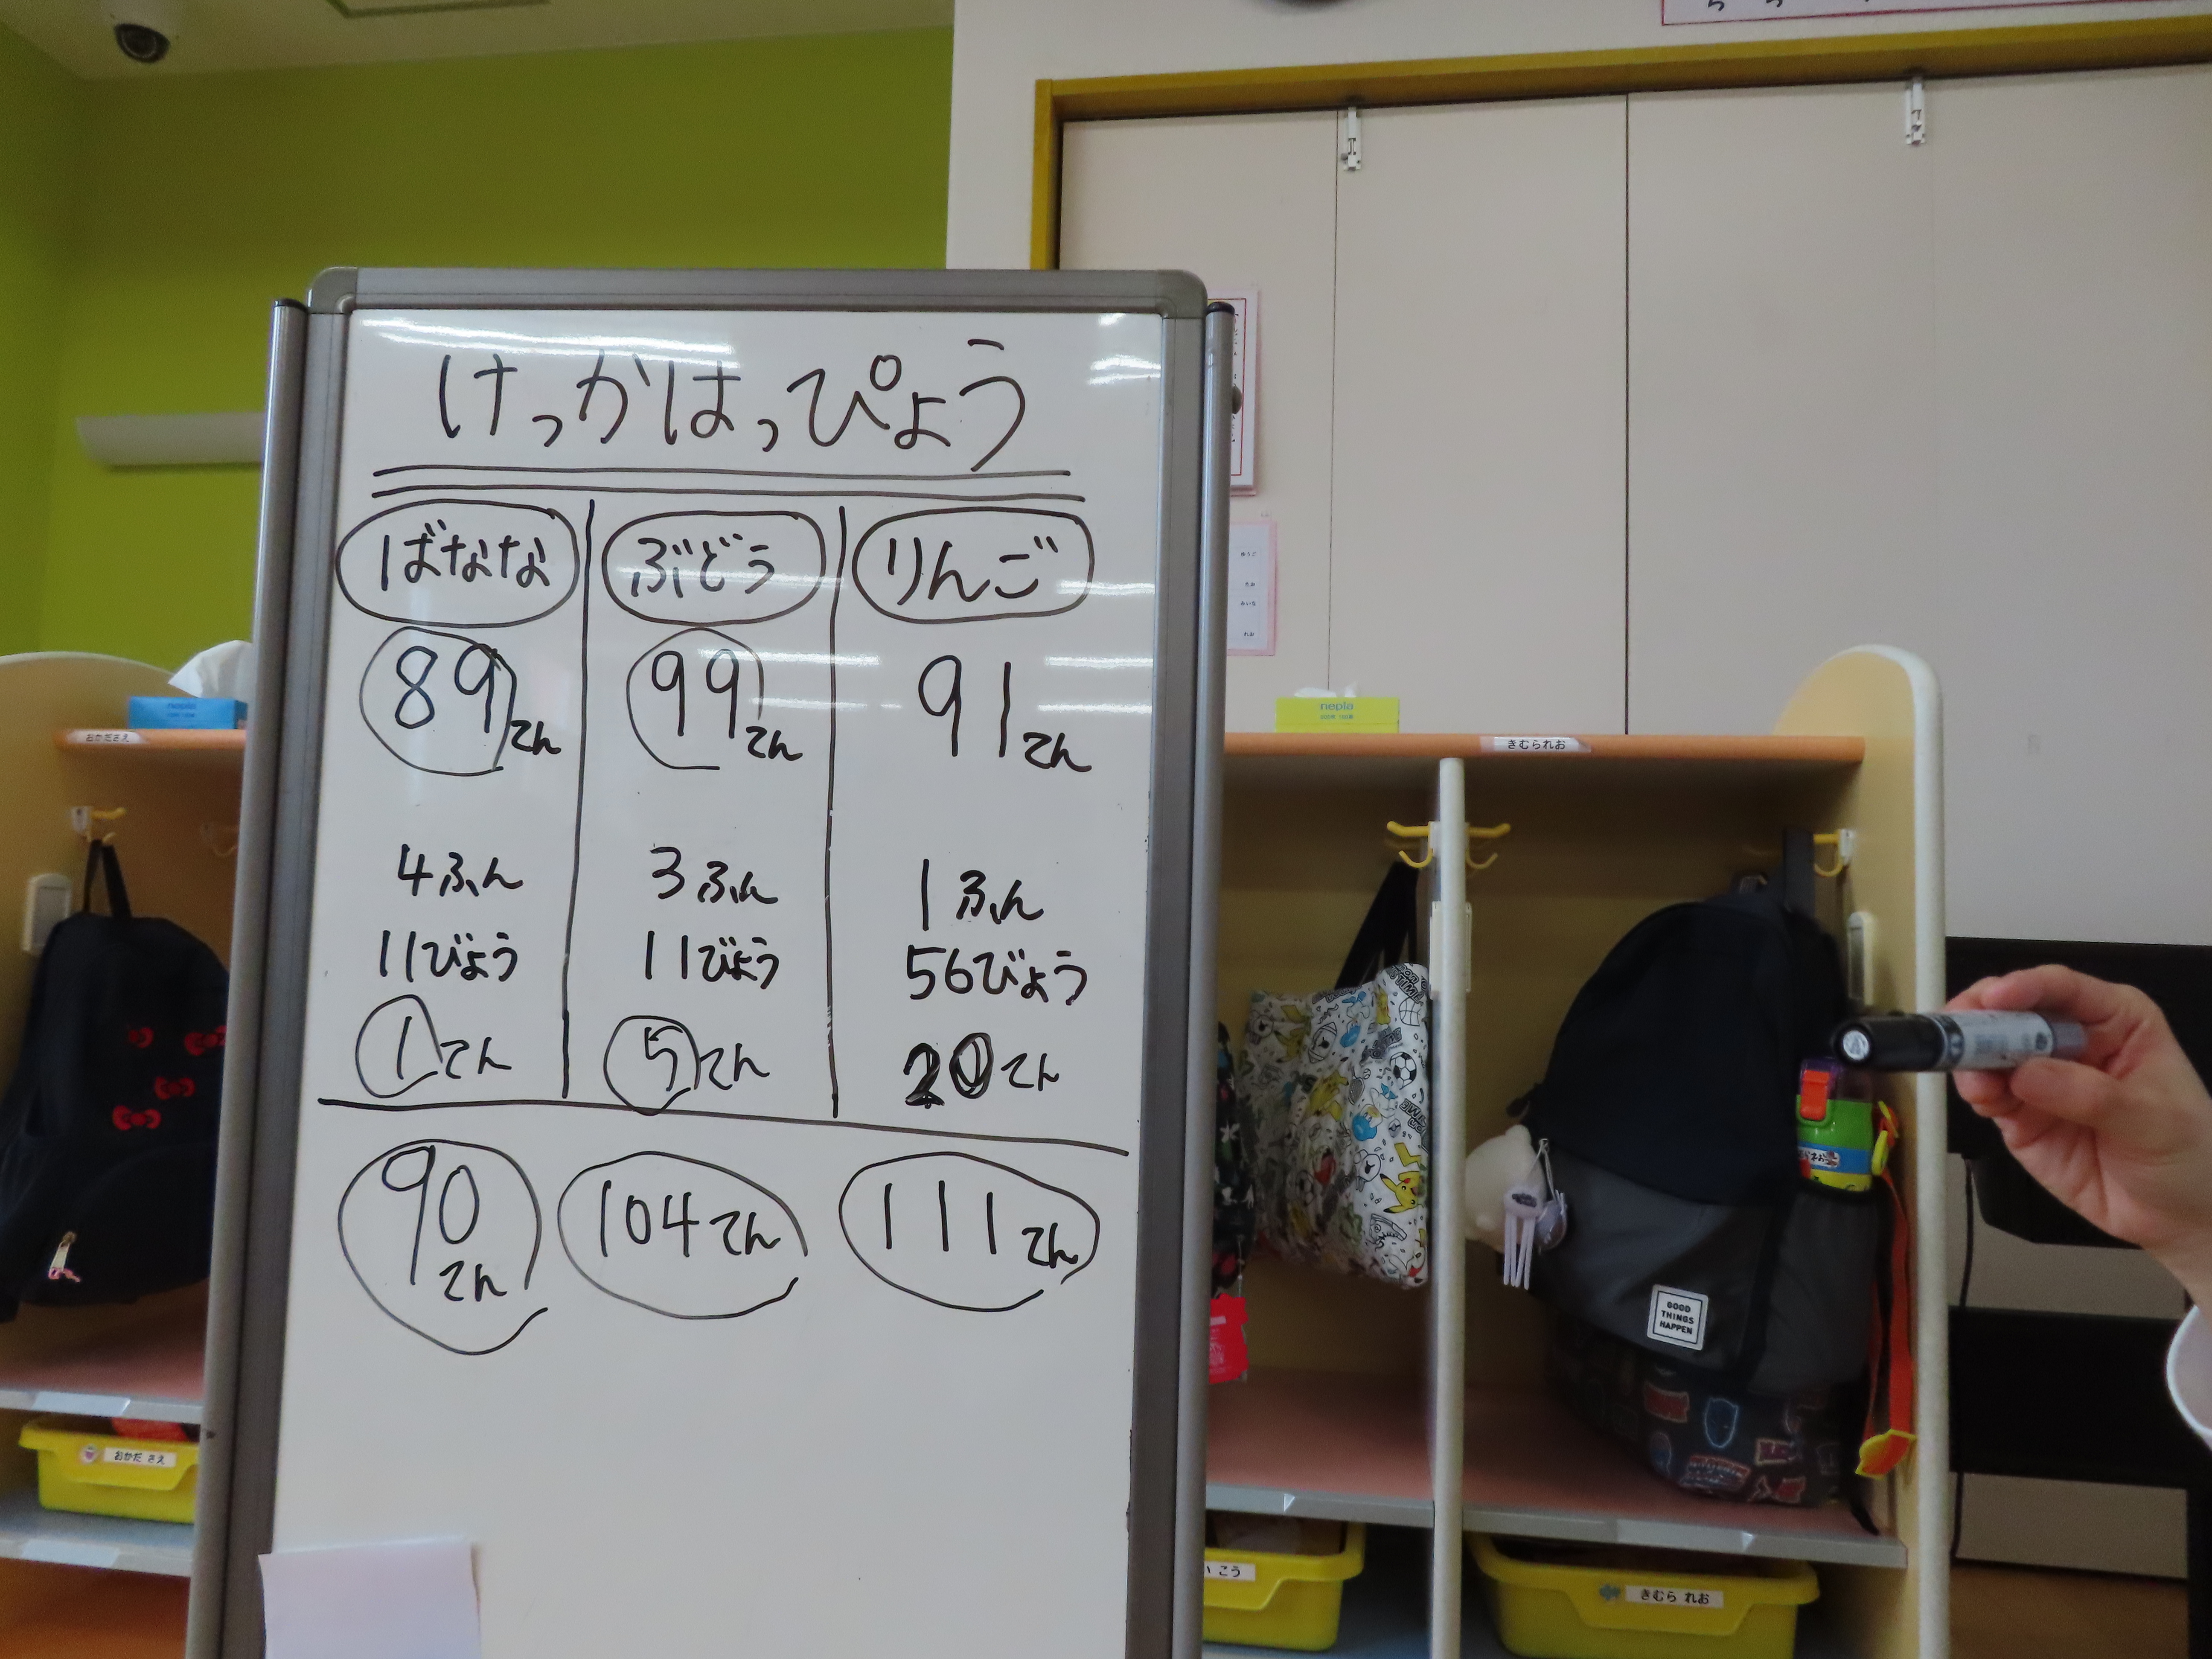 けっかはっぴょう
ばなな ぶどう りんご
89てん 99てん 91てん
4ふん 3ふん 1ふん
11びょう 11びょう 56びょう
1てん 5てん 20てん
90てん 104てん 111てん
nepia
nepia
おかださえ
きむられお
GOOD
THINGS
HAPPEN
おかだ さえ
こう
きむら れお